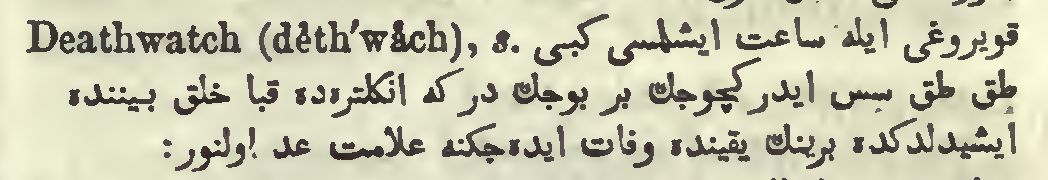 Deathwatch (dĕth′wåch), s. قویروغی ایله ساعت ایشلمسی کبی
طق طق سس ایدر کچوجك بر بوجك در که انکلترەدە قبا خلق بیننده
ایشیدلدکده برینك یقینده وفات ایدەجکنه علامت عد اولنور: